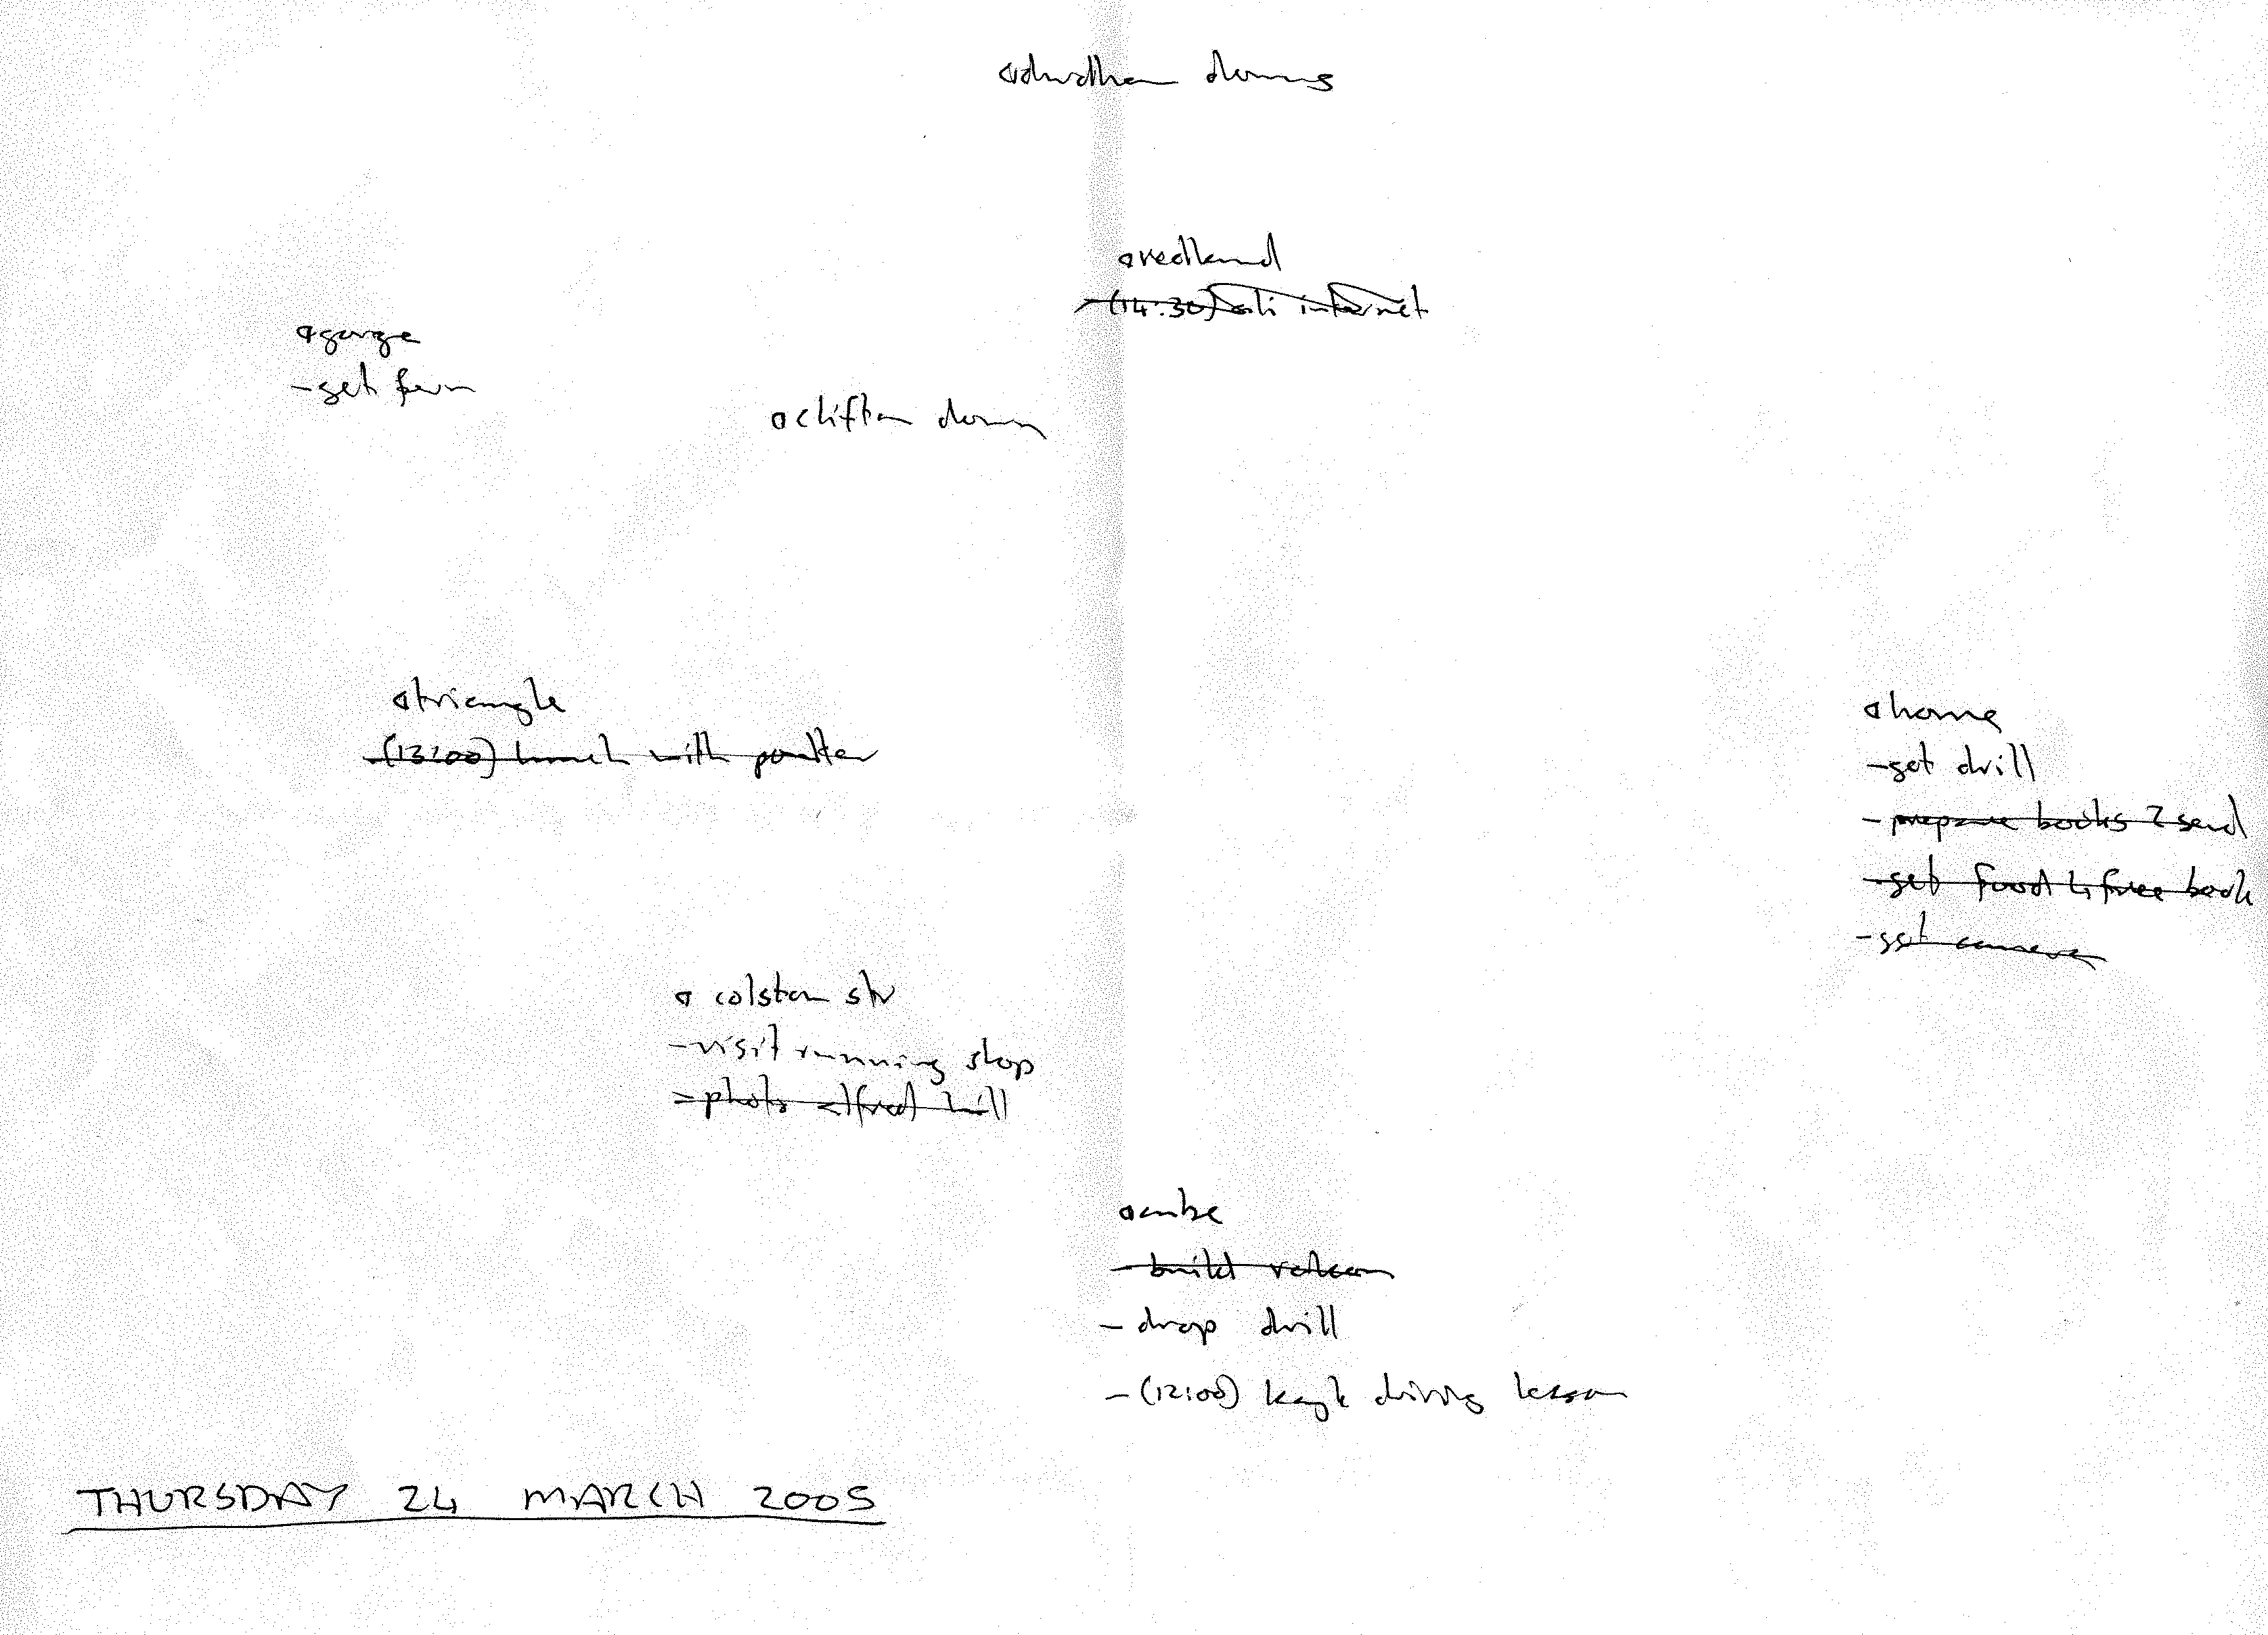 durdham downs
redland
(14:30) ali internet
gorge
- get fern
clifton down
triangle
- (13:00) lunch with poulter
home
- get drill
- prepare books 2 send
- get food 4 free book
- get camera
colston str
- visit running shop
- photo alfred hill
cube
- build
- drop drill
- (12:00) driving lesson
THURSDAY 24 MARCH 2005